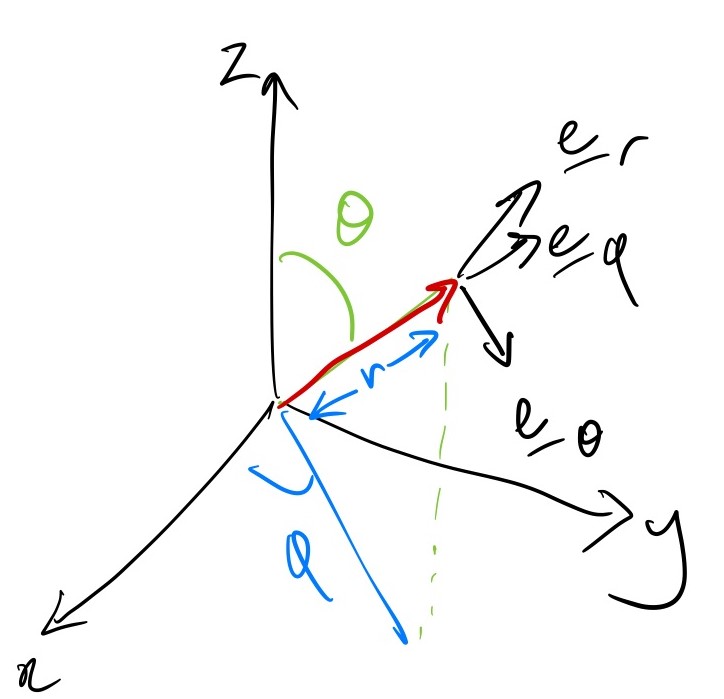 z
e r
θ
e φ
r
e θ
φ
y
x